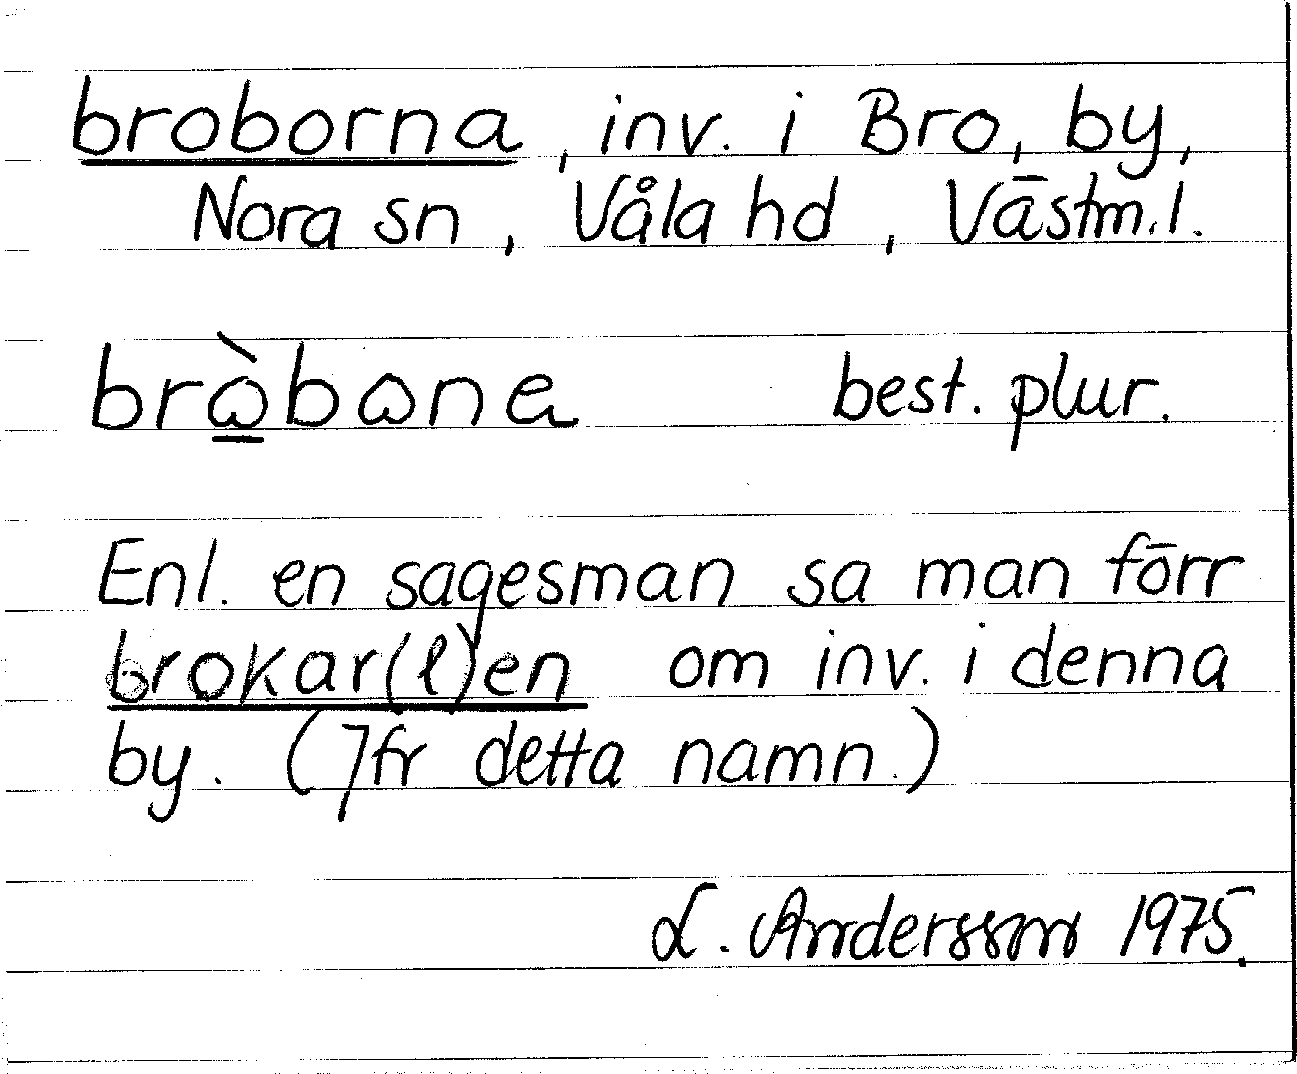 broborna, inv. i Bro, by,
Nora sn, Våla hd, Västm.l.
brɷ̠̀bɷna best. plur.
Enl. en sagesman sa man förr
brokar(l)en om inv. i denna
by. (Jfr detta namn.)
L. Andersson 1975.